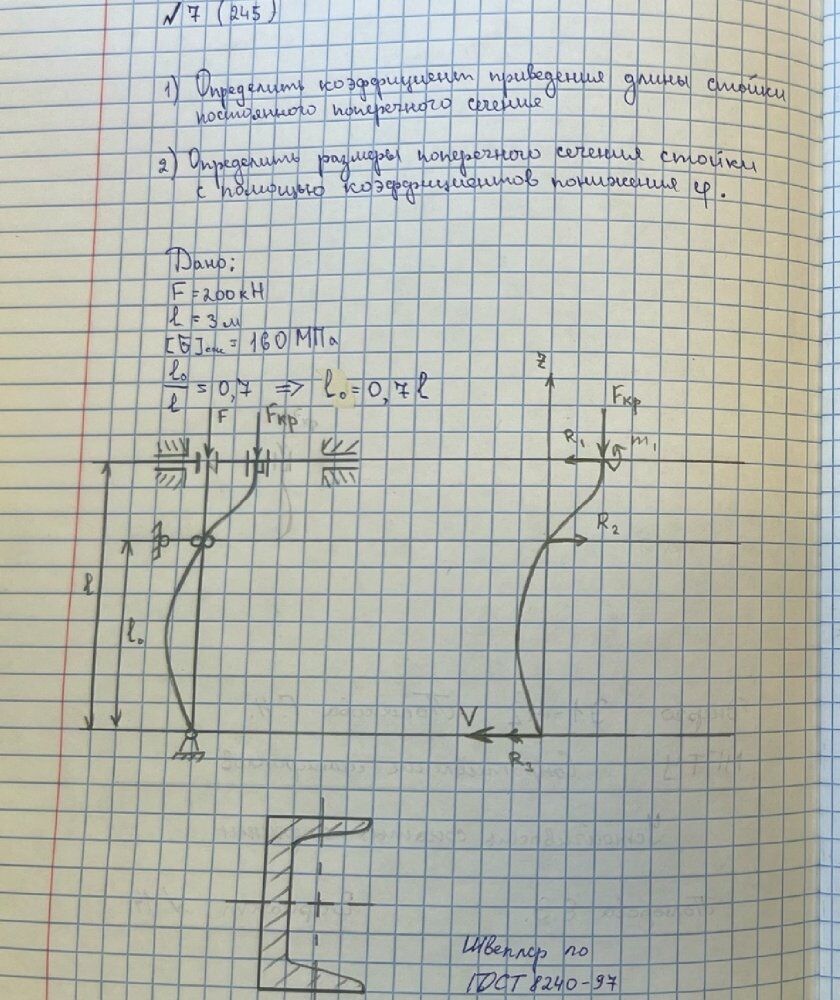 №7 (245)
1) Определить коэффициент приведения длины стойки
постоянного поперечного сечения
2) Определить размеры поперечного сечения стойки
с помощью коэффициентов понижения φ.
Дано:
F = 200 кН
l = 3 м
[σ]сж = 160 МПа
l₀/l = 0,7 => l₀ = 0,7 l
F
Fкр
l
l₀
z
Fкр
R₁
m₁
R₂
V
R₃
Швеллер по
ГОСТ 8240-97